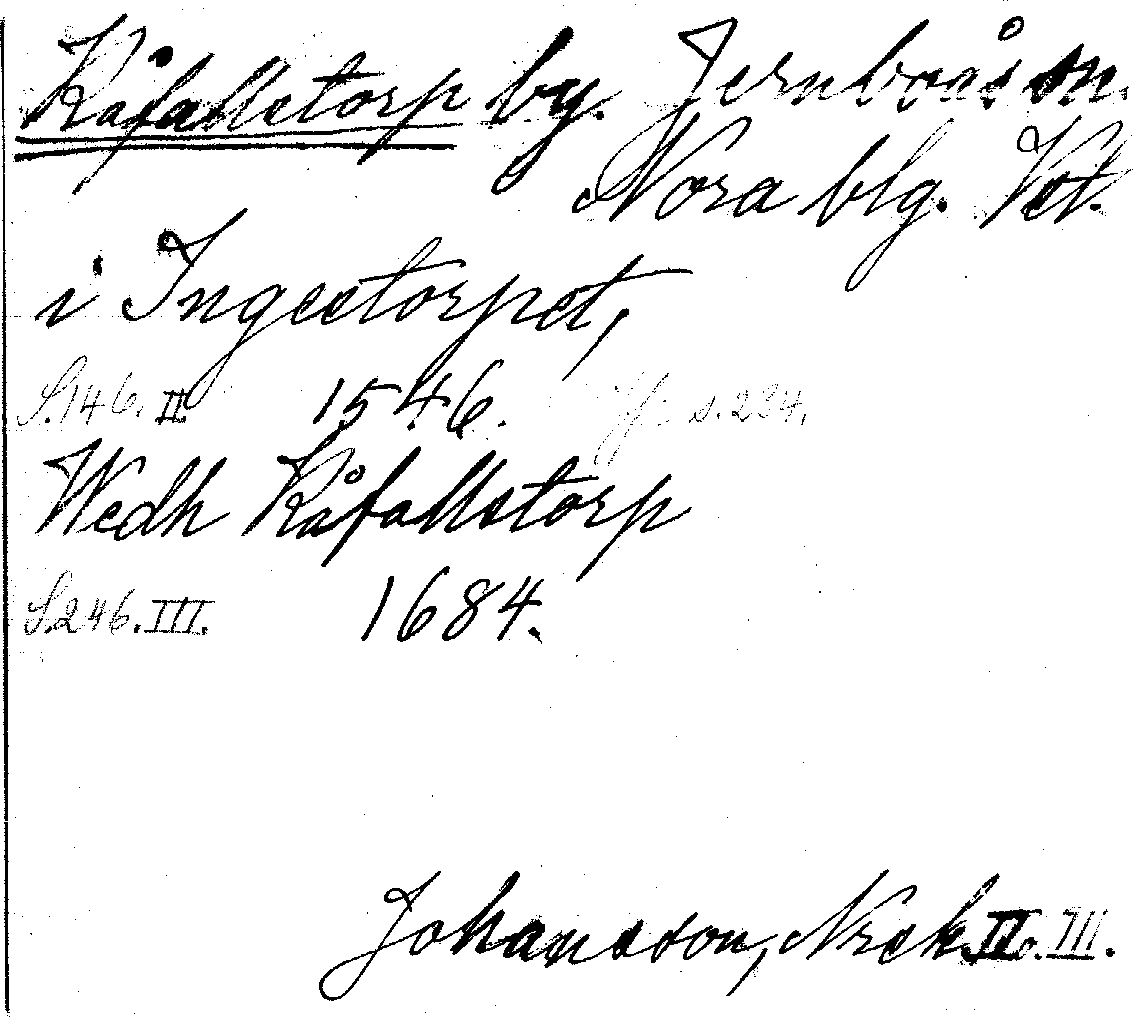 Kåfallstorp by. Jernboås sn.
Nora blg. Vst.
i Ingestorpet,
S.146. II. 1546. Jfr s.234.
Wedh Kåfallstorp
S.246. III. 1684.
Johansson, Norek. II o. III.